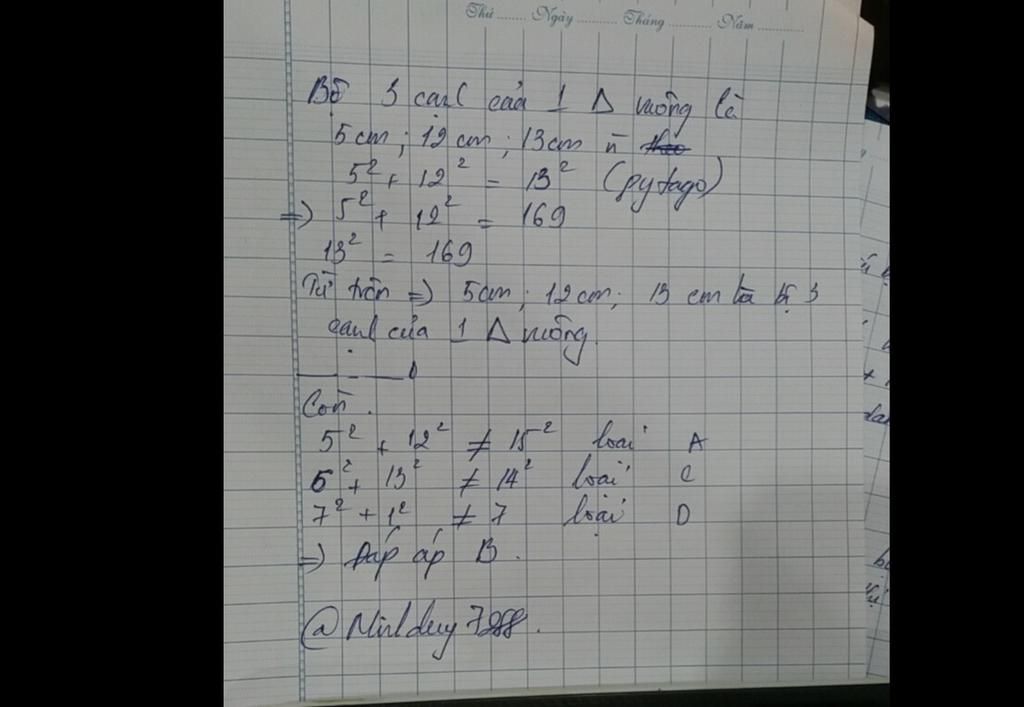 Thứ ........ Ngày ........... Tháng ............ Năm .............
Bộ 3 cạnh của 1 Δ vuông là
5cm ; 12 cm ; 13cm vì
5² + 12² = 13² (pytago)
=> 5² + 12² = 169
13² = 169
Từ trên => 5cm ; 12cm ; 13 cm là bộ 3
cạnh của 1 Δ vuông.
Còn.
5² + 12² ≠ 15² loại A
6² + 13² ≠ 14² loại C
7² + 1² ≠ 7 loại D
=> Đáp áp B.
@Minhduy